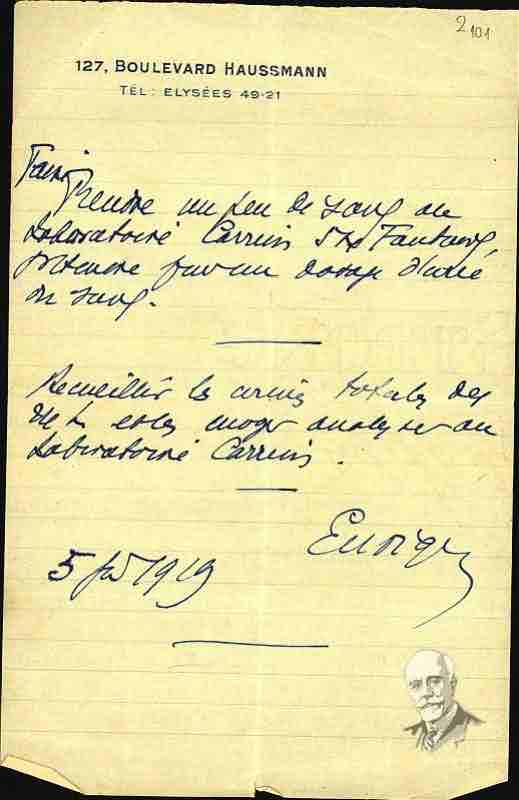 2 101
127, BOULEVARD HAUSSMANN
TÉL: ELYSÉES 49-21
Faire
Prendre un peu de sang au
Laboratoire Carrion
pour un dosage d'urée
du sang.
Recueillir les urines totales des
24 h et les analyser au
Laboratoire Carrion.
5 1919